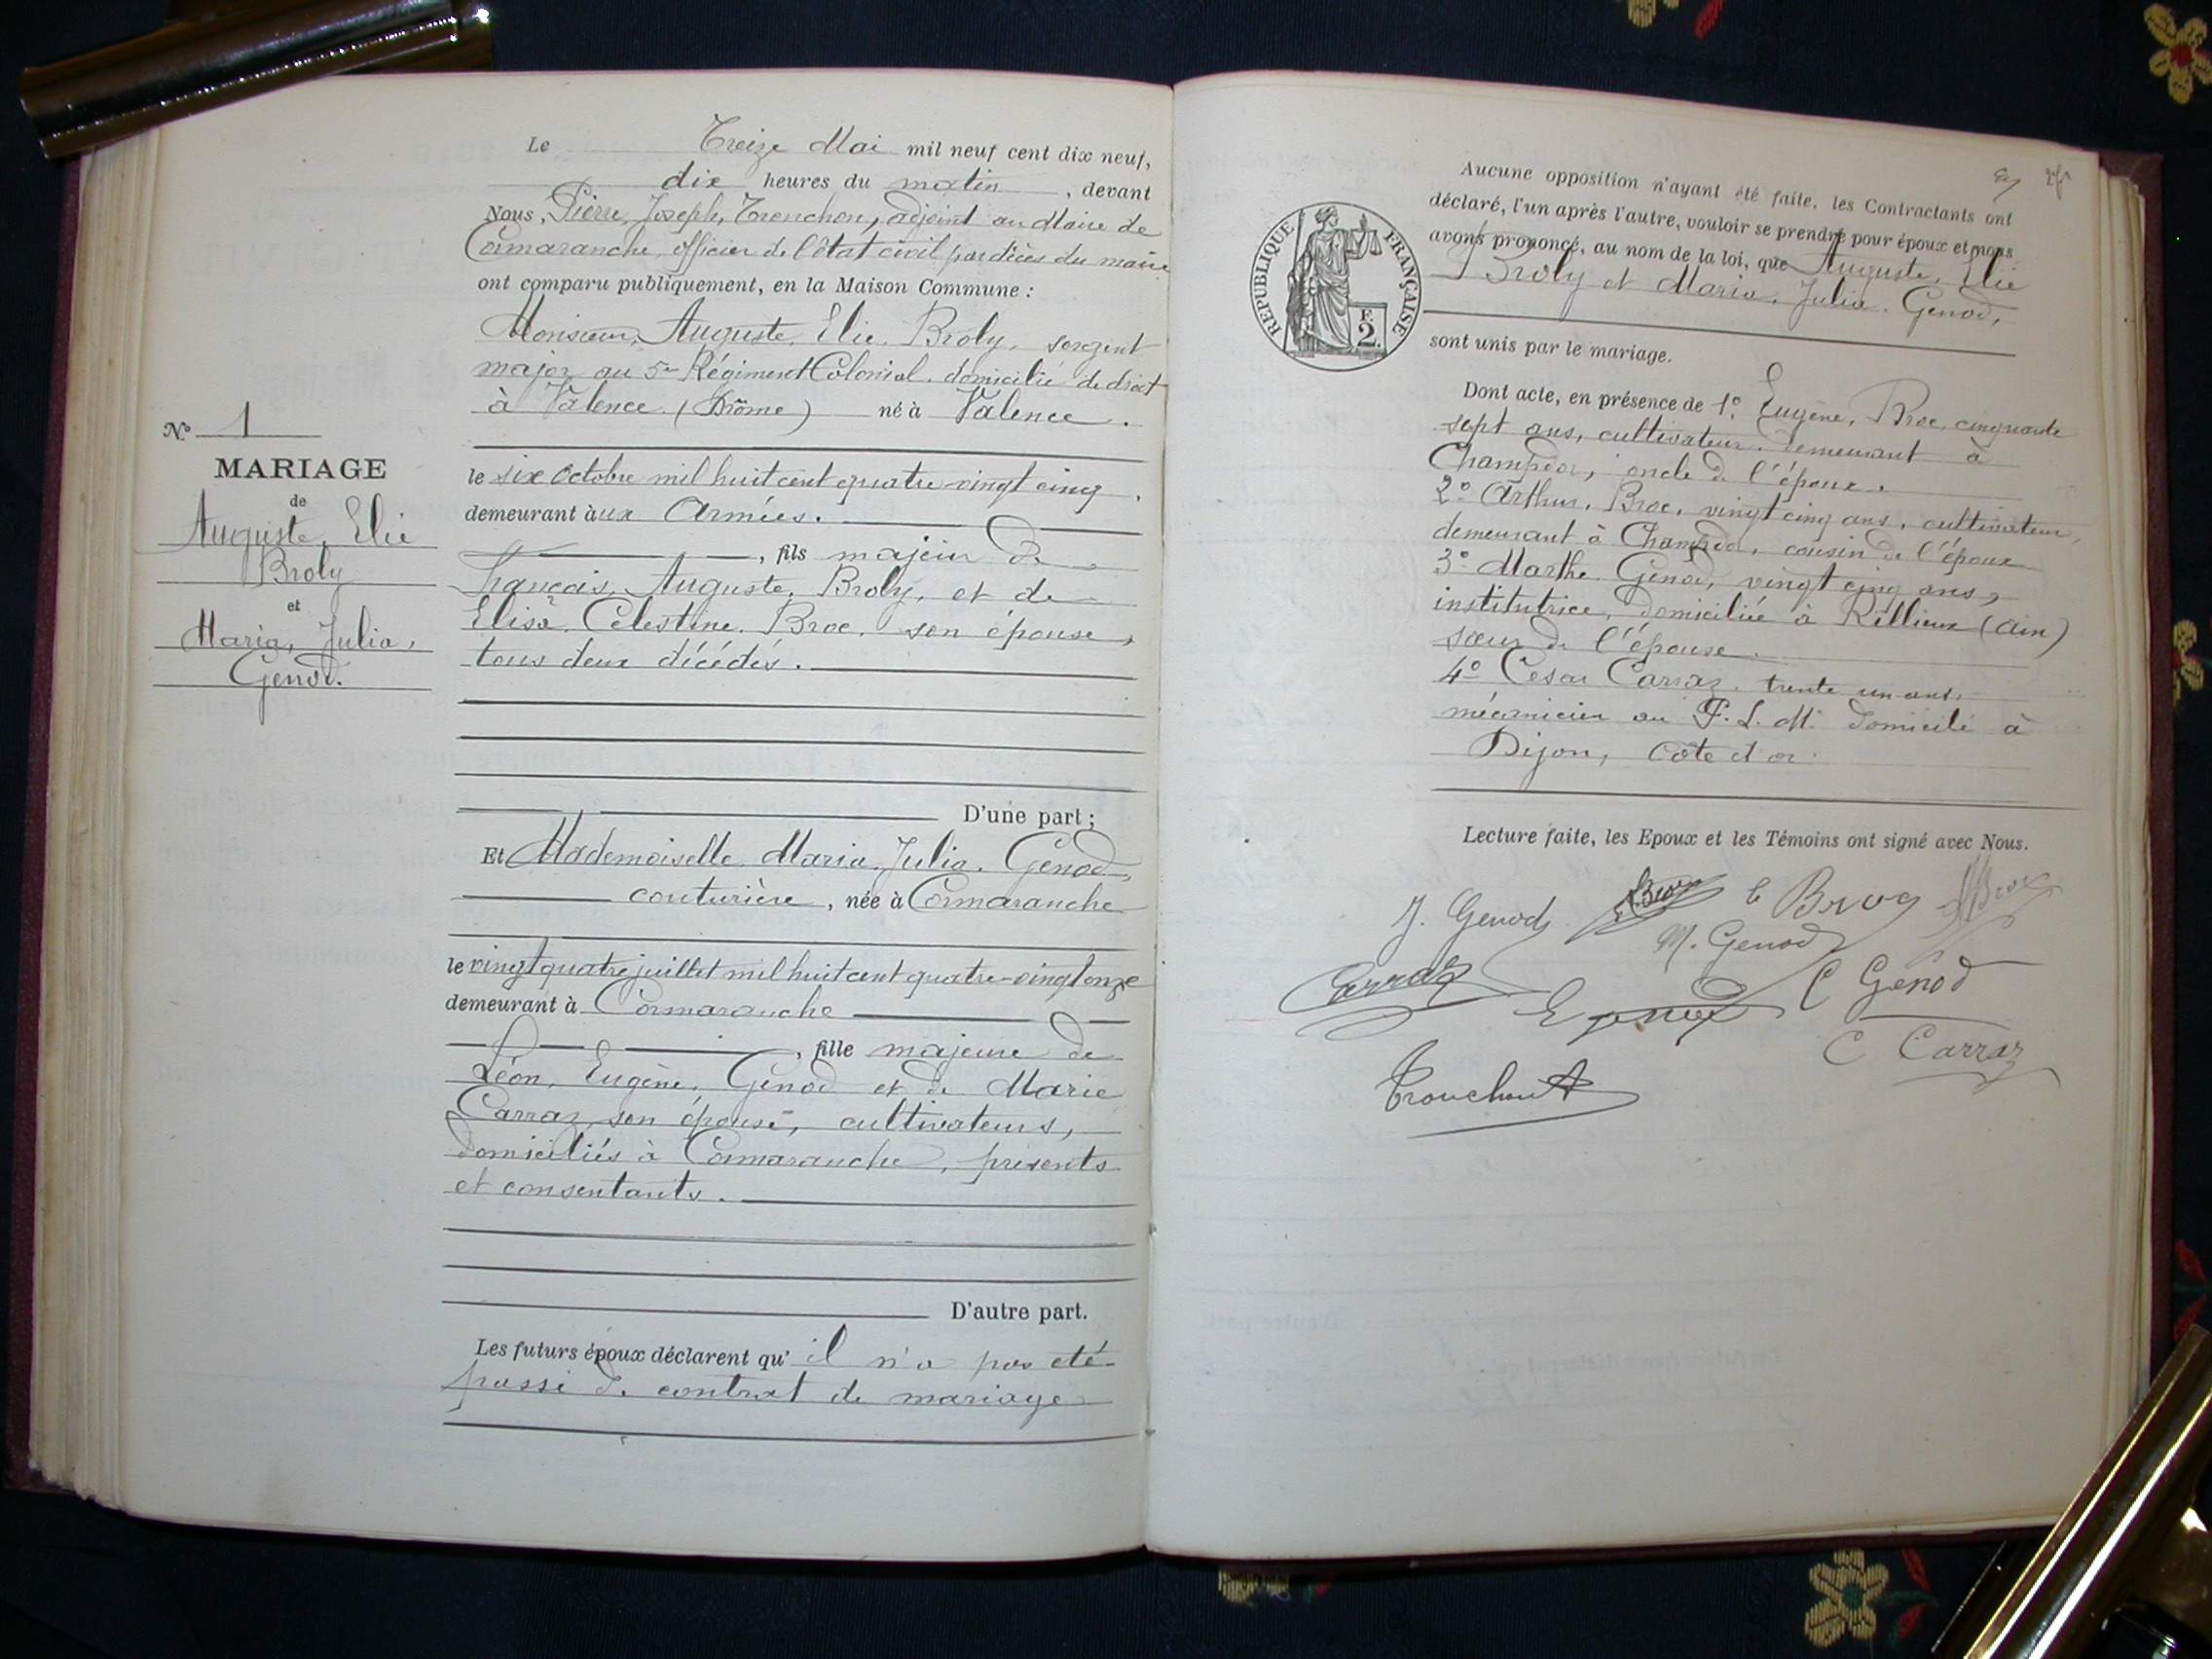 Le Treize Mai mil neuf cent dix neuf,
dix heures du matin, devant
Nous, Pierre, Joseph, Trouchon, adjoint au Maire de
Cormaranche, officier de l'état civil par décès du maire
ont comparu publiquement, en la Maison Commune :
Monsieur, Auguste, Elie, Broly, sergent
major au 5me Régiment Colonial, domicilié de droit
à Valence (Drôme) né à Valence.
N° 1
MARIAGE
de
Auguste, Elie
Broly
et
Maria, Julia,
Genod.
le six Octobre mil huit cent quatre-vingt cinq,
demeurant aux Armées.
, fils majeur de
François, Auguste, Broly, et de
Elisa, Célestine, Broc, son épouse,
tous deux décédés.
D'une part ;
Et Mademoiselle, Maria, Julia, Genod,
couturière, née à Cormaranche
le vingt quatre juillet mil huit cent quatre-vingt onze
demeurant à Cormaranche
, fille majeure de
Léon, Eugène, Genod et de Marie
Carraz, son épouse, cultivateurs,
domiciliés à Cormaranche, présents
et consentants.
D'autre part.
Les futurs époux déclarent qu'il n'a pas été
passé de contrat de mariage
Aucune opposition n'ayant été faite, les Contractants ont
déclaré, l'un après l'autre, vouloir se prendre pour époux et nous
avons prononcé, au nom de la loi, que Auguste, Elie
Broly et Maria, Julia, Genod,
RÉPUBLIQUE FRANÇAISE
F.
2.
sont unis par le mariage.
Dont acte, en présence de 1° Eugène, Broc, cinquante
sept ans, cultivateur, demeurant à
Champdor, oncle de l'époux.
2° Arthur, Broc, vingt cinq ans, cultivateur,
demeurant à Champdor, cousin de l'époux
3° Marthe Genod, vingt cinq ans,
institutrice, domiciliée à Rillieux (Ain)
sœur de l'épouse.
4° César Carraz, trente un ans,
mécanicien au P. L. M. domicilié à
Dijon, Côte d'or.
Lecture faite, les Epoux et les Témoins ont signé avec Nous.
J. Genod E Broc
M. Genod
Carraz E Genod C Genod
C Carraz
Trouchon